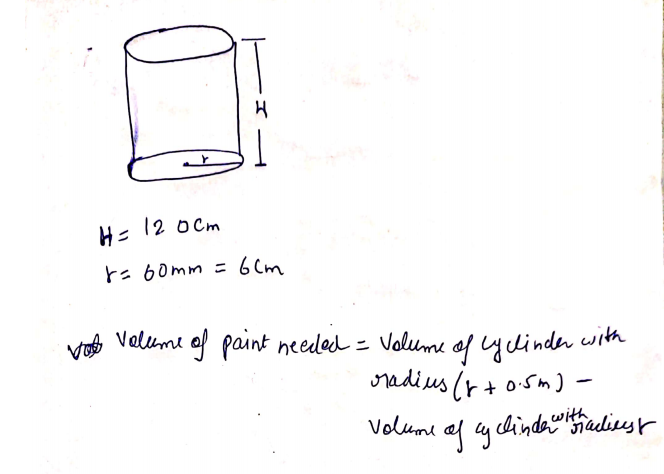 H
r
H = 120cm
r = 60mm = 6cm
Volume of paint needed = Volume of cylinder with
radius (r + 0.5m) -
Volume of cylinder with radius r